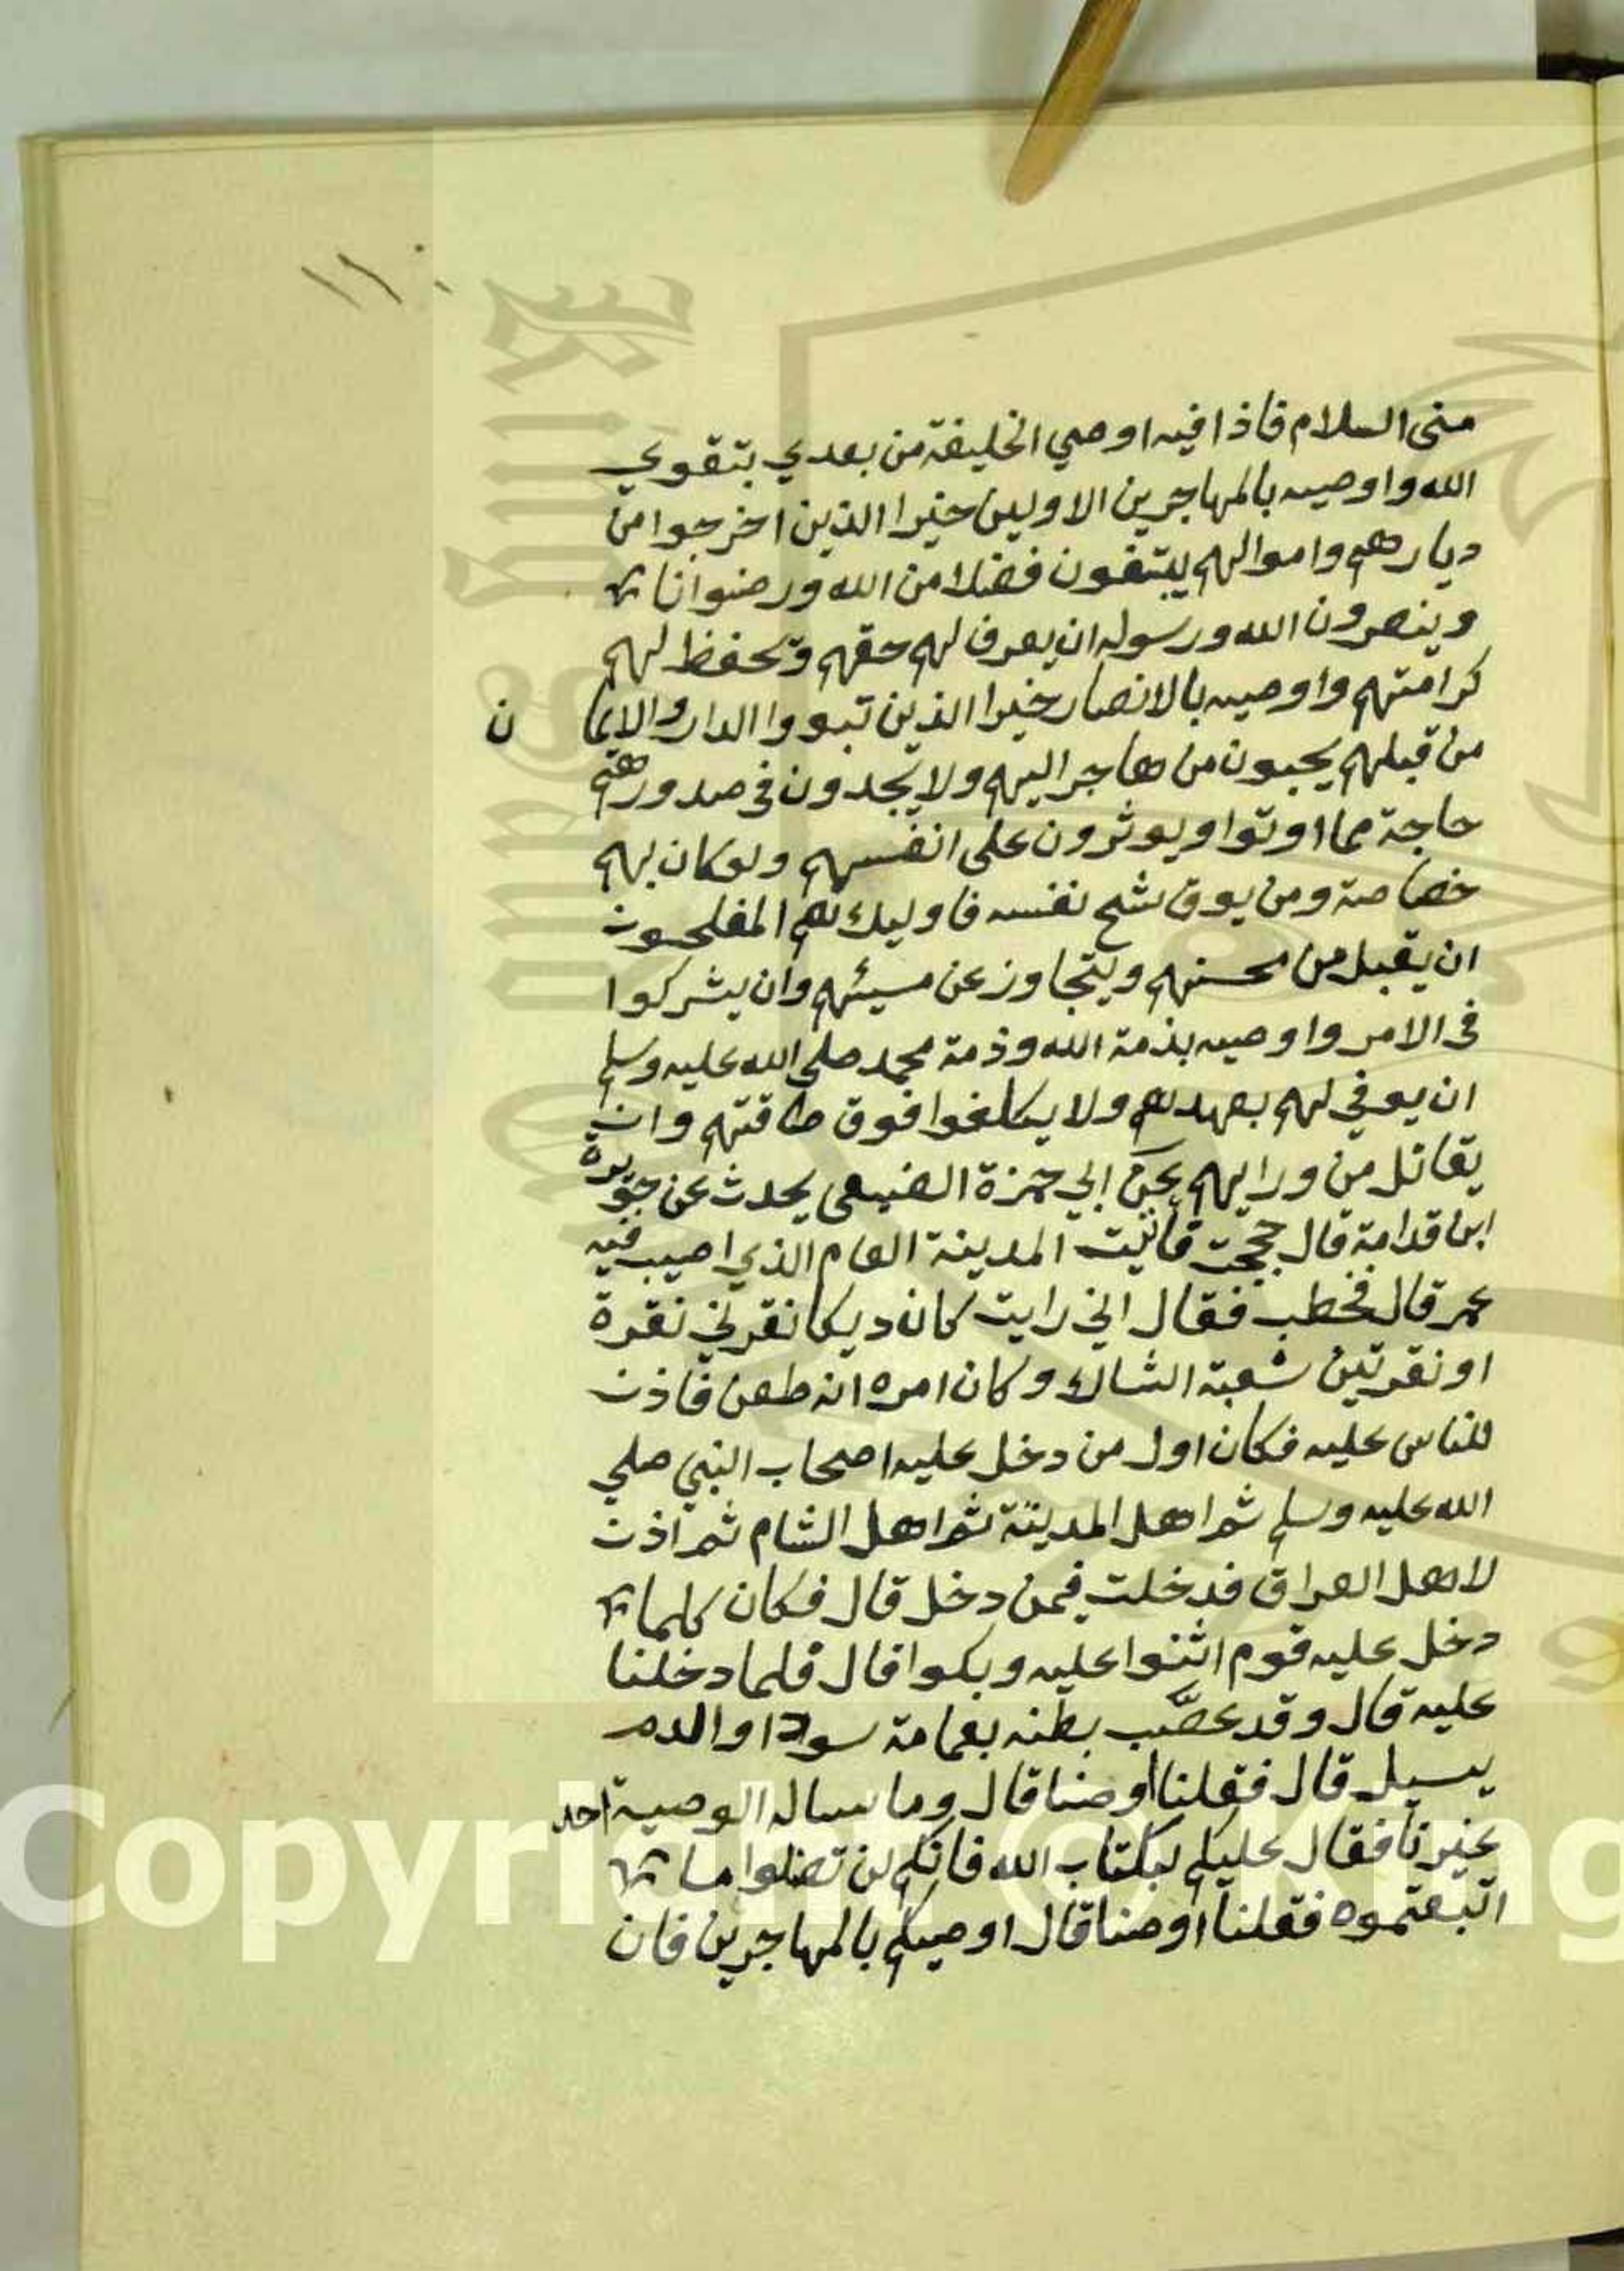 ١١٠
منى السلام فاذا فيه اوصي الخليفة من بعدي بتقوي
الله واوصيه بالمهاجرين الاولين خيرا الذين اخرجوا من
ديارهم واموالهم يبتغون فضلا من الله ورضوانا
وينصرون الله ورسوله ان يعرف لهم حقهم وتحفظ لهم
كرامتهم واوصيه بالانصار خيرا الذين تبووا الدار والايمان
من قبلهم يحبون من هاجر اليهم ولا يجدون في صدورهم
حاجة مما اوتوا ويوثرون على انفسهم ولو كان بهم
خصاصة ومن يوق شح نفسه فاوليك هم المفلحون
ان يقبل من محسنهم ويتجاوز عن مسيئهم وان يشركوا
في الامر واوصيه بذمة الله وذمة محمد صلى الله عليه وسلم
ان يوفي لهم بعهدهم ولا يكلفوا فوق طاقتهم وان
يقاتل من ورايهم عن ابي حمزة الضبعي يحدث عن جويرة
ابن قدامة قال حججت فاتيت المدينة العام الذي اصيب فيه
عمر قال فخطب فقال اني رايت كان ديكا نقرني نقرة
او نقرتين شعبة الشاك وكان امره انه طعن فاذن
للناس عليه فكان اول من دخل عليه اصحاب النبي صلي
الله عليه وسلم ثم اهل المدينة ثم اهل الشام ثم اذن
لاهل العراق فدخلت فيمن دخل قال فكان كلما
دخل عليه قوم اثنوا عليه وبكوا قال فلما دخلنا
عليه قال وقد عصّب بطنه بعمامة سودا والدم
يسيل قال فقلنا اوصنا قال وما ساله الوصية احد
غيرنا فقال عليكم بكتاب الله فانكم لن تضلوا ما
اتبعتموه فقلنا اوصنا قال اوصيكم بالمهاجرين فان
Copyright © King